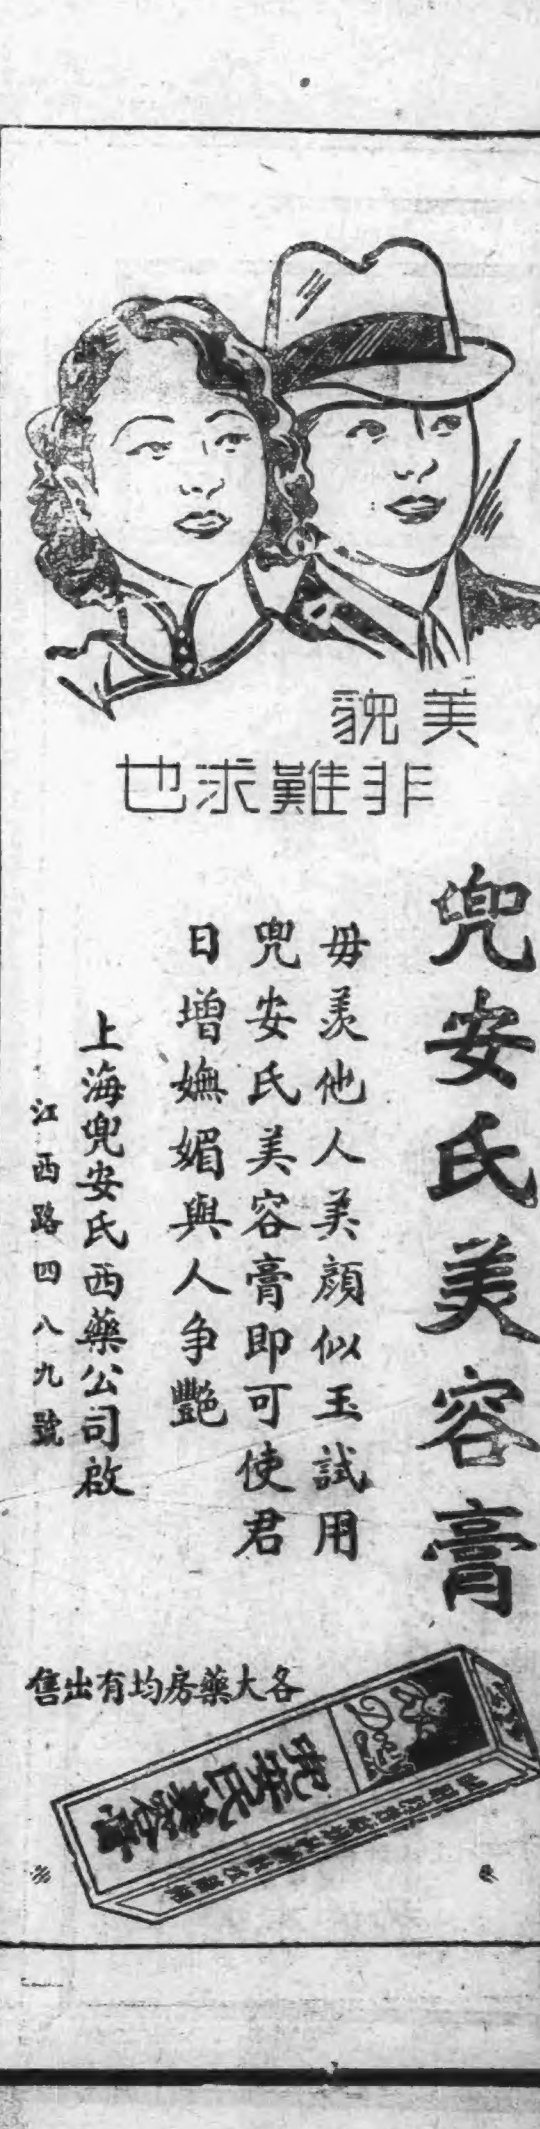 美貌
非難求也
兜安氏美容膏
毋羨他人美顏似玉試用
兜安氏美容膏即可使君
日增嫵媚與人爭艷
上海兜安氏西藥公司啟
江西路四八九號
各大藥房均有出售
兜安氏美容膏